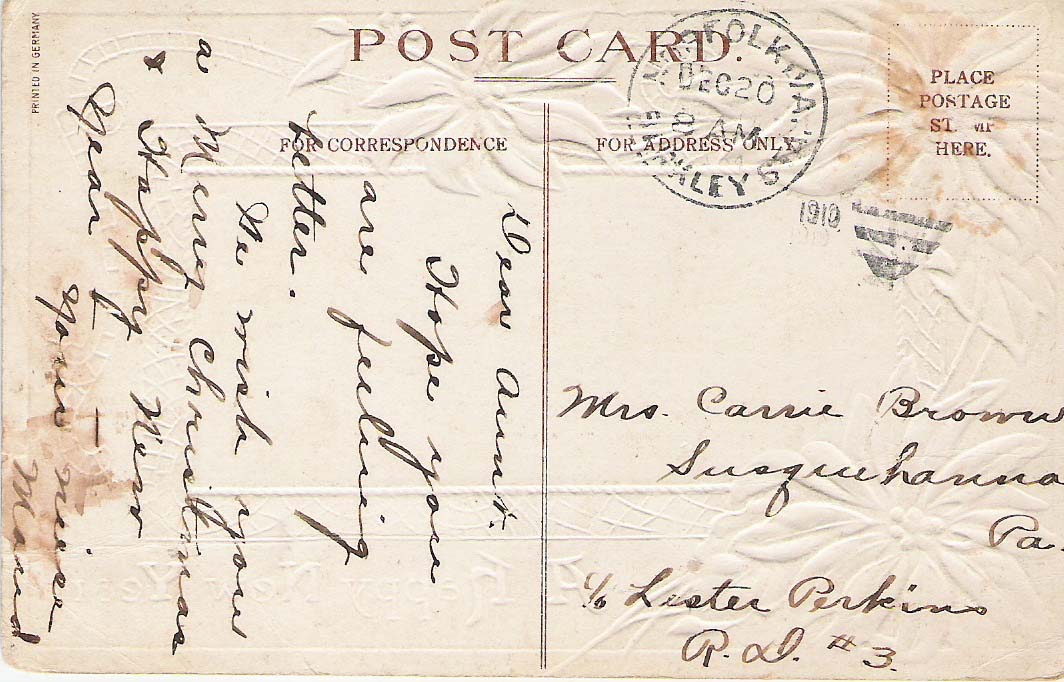 PRINTED IN GERMANY
POST CARD.
FOR CORRESPONDENCE
FOR ADDRESS ONLY
PLACE
POSTAGE
HERE.
NORFOLK, VA.
DEC 20
8 AM
BERKLEY
1910
Dear Aunt.
Hope you
are feeling
better.
We wish you
a Merry Christmas
& Happy New
Year —
Your niece
Maud.
Mrs. Carrie Brown
Susquehanna
Pa.
c/o Lester Perkins
R.D. #3.
A Happy New Year